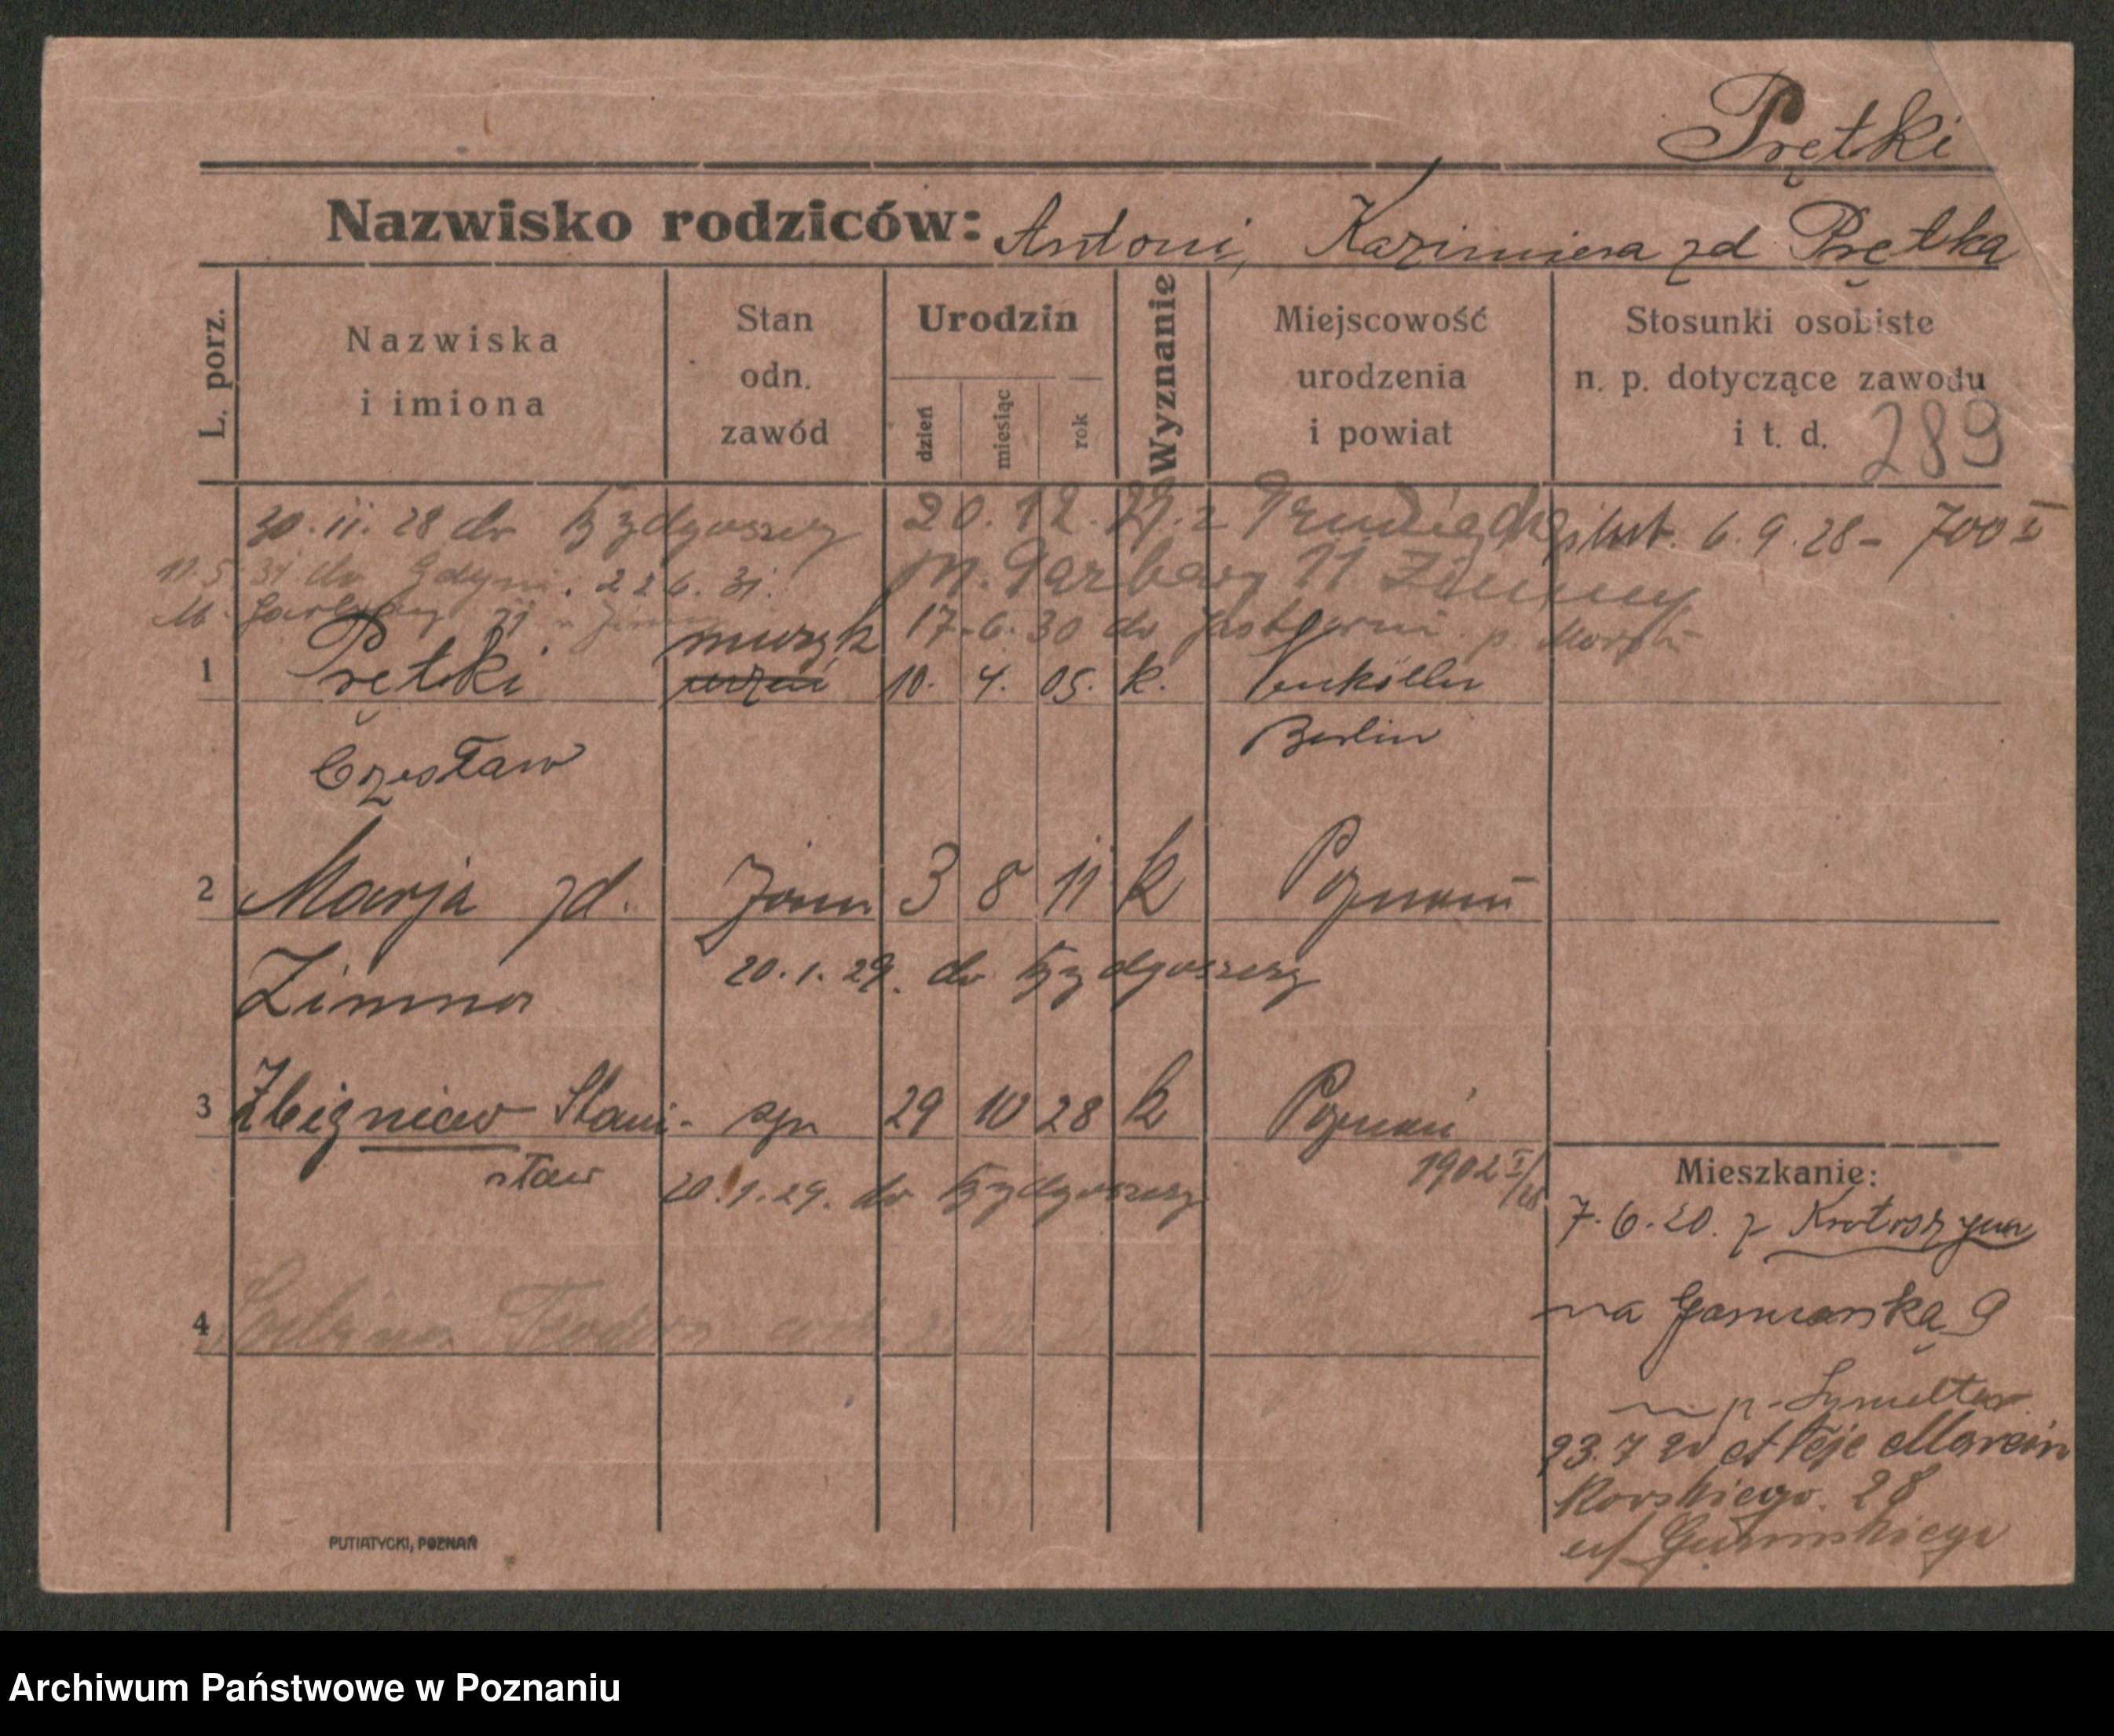 Prętki
Nazwisko rodziców: Antoni, Kazimiera zd Prętka
L. porz.
Nazwiska i imiona
Stan odn. zawód
Urodzin
dzień
miesiąc
rok
Wyznanie
Miejscowość urodzenia i powiat
Stosunki osobiste n. p. dotyczące zawodu i t. d.
289
30.11.28 do Bydgoszczy 20.12.29. z Grudziądza ślub. 6.9.28 - 700 I
11.5.31 do Gdyni. 22 6. 31. m. Garbary 11 Zimny
M. Garbary 11 Zimny 17.6.30 do Jastarni p. Morski
muzyk
1 Prętki uczeń 10. 4. 05. k. Neukölln
Czesław Berlin
2 Marja zd. żona 3 8 11 k Poznań
Zimna 20.1.29. do Bydgoszczy
3 Zbigniew Stani- syn 29 10 28 k Poznań
sław 20.1.29. do Bydgoszczy 1902 I/28
4 Teodora
Mieszkanie:
7.6.20. z Krotoszyna
na 9
p.
23.7 20 Aleje Marcin
kowskiego 28
PUTIATYCKI, POZNAŃ
Archiwum Państwowe w Poznaniu